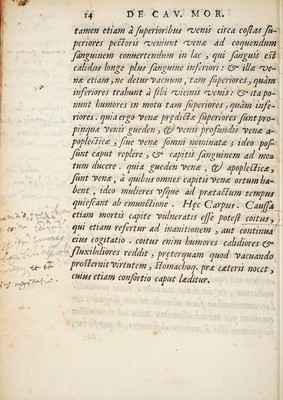 14 DE CAV. MOR.
tamen etiam à superioribus venis circa costas su-
periores pectoris veniunt venæ ad coquendum
sanguinem conuertendum in lac, qui sanguis est
calidus longe plus sanguine inferiori: & illæ ve-
næ etiam, ne detur vacuum, tam superiores, quàm
inferiores trahunt à sibi vicinis venis: & ita po-
nunt humores in motu tam superiores, quàm infe-
riores. quia ergo venæ prædictæ superiores sunt pro-
pinquæ venis gueden, & venis profundis venæ a-
poplecticæ, siue venæ somni nominatæ; ideo pos-
sunt caput replere, & capitis sanguinem ad mo-
tum ducere. quia gueden venæ, & apoplecticæ,
sunt venæ, à quibus omnes capitis venæ ortum ha-
bent, ideo mulieres vsque ad prætactum tempus
quiescant ab emunctione. Hęc Carpus. Caussa
etiam mortis capite vulneratis esse potest coitus,
qui etiam refertur ad inanitionem, aut continua
eius cogitatio. coitus enim humores calidiores &
fluxibiliores reddit, præterquam quod vacuando
prosternit virtutem, stomachoq. præ cæteris nocet,
cuius etiam consortio caput læditur.